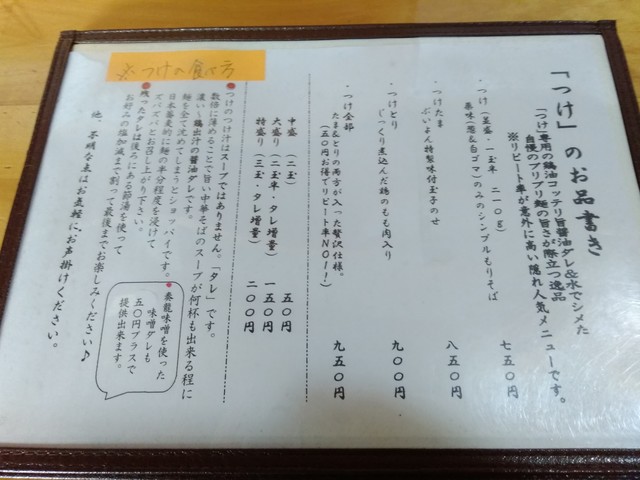 「つけ」のお品書き
「つけ」専用の鶏油コッテリ旨醤油ダレ&水でシメた
自慢のプリプリ麺の旨さが際立つ逸品
※リピート率が意外に高い隠れ人気メニューです。
・つけ(並盛・一玉半 二一〇g) 七五〇円
薬味(葱&白ゴマ)のみのシンプルもりそば
・つけたま 八五〇円
ぷいよん特製味付玉子のせ
・つけとり 九〇〇円
じっくり煮込んだ鶏のもも肉入り
・つけ全部 九五〇円
たま&とりの両方が入った贅沢仕様。
(五〇円お得でリピート率NO1!)
中盛(二玉) 五〇円
大盛り(二玉半・タレ増量) 一五〇円
特盛り(三玉・タレ増量) 二〇〇円
※つけの食べ方
●つけのつけ汁はスープではありません。「タレ」です。
数倍に薄めることで旨い中華そばのスープが何杯も出来る程に
濃い〜鶏出汁の醤油ダレです。
麺を全て沈めてしまうとショッパイです。
日本蕎麦的に麺の半分程度を浸けて
ズバズバとお召し上がり下さい。
●残ったタレは後ろにある節湯を使って
お好みの塩加減まで割って最後までお楽しみください♪
他、不明な点はお気軽に、お声掛けください。
●秦龍味噌を使った
味噌ダレも
五〇円プラスで
提供出来ます。